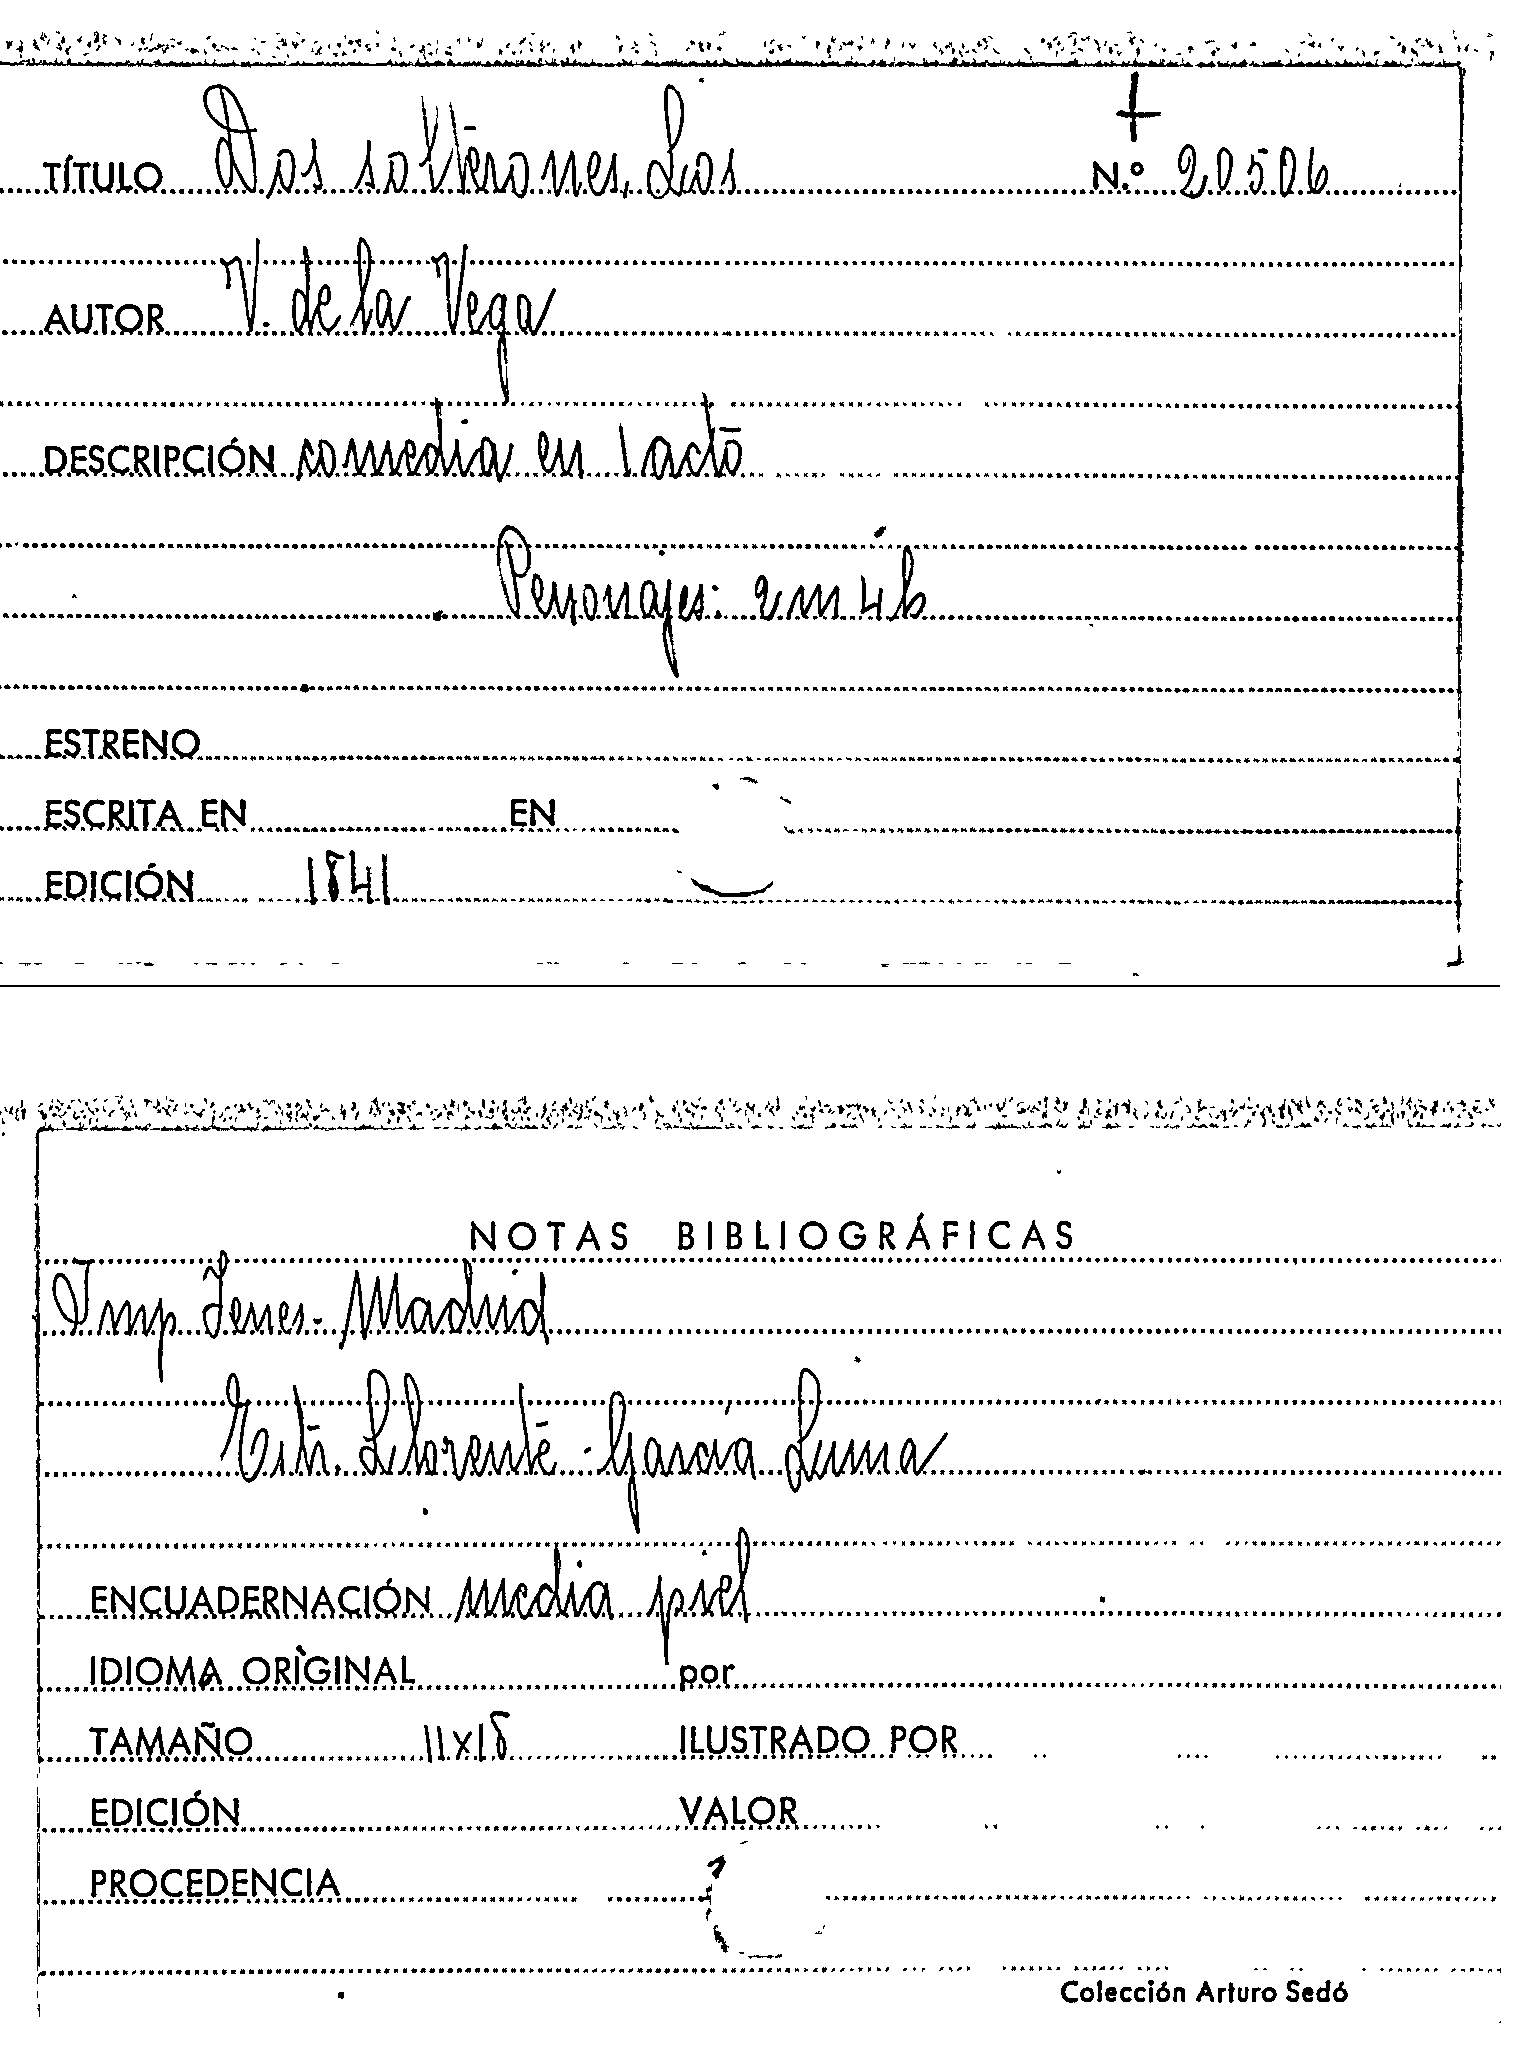 +
TÍTULO Dos solterones, Los N.º 20506
AUTOR V. de la Vega
DESCRIPCIÓN comedia en 1 acto
Personajes: 2 m 4 h
ESTRENO
ESCRITA EN EN
EDICIÓN 1841
NOTAS BIBLIOGRÁFICAS
Imp Yenes - Madrid
Estr. Llorente - García Luna
ENCUADERNACIÓN media piel
IDIOMA ORIGINAL por
TAMAÑO 11x18 ILUSTRADO POR
EDICIÓN VALOR
PROCEDENCIA
Colección Arturo Sedó